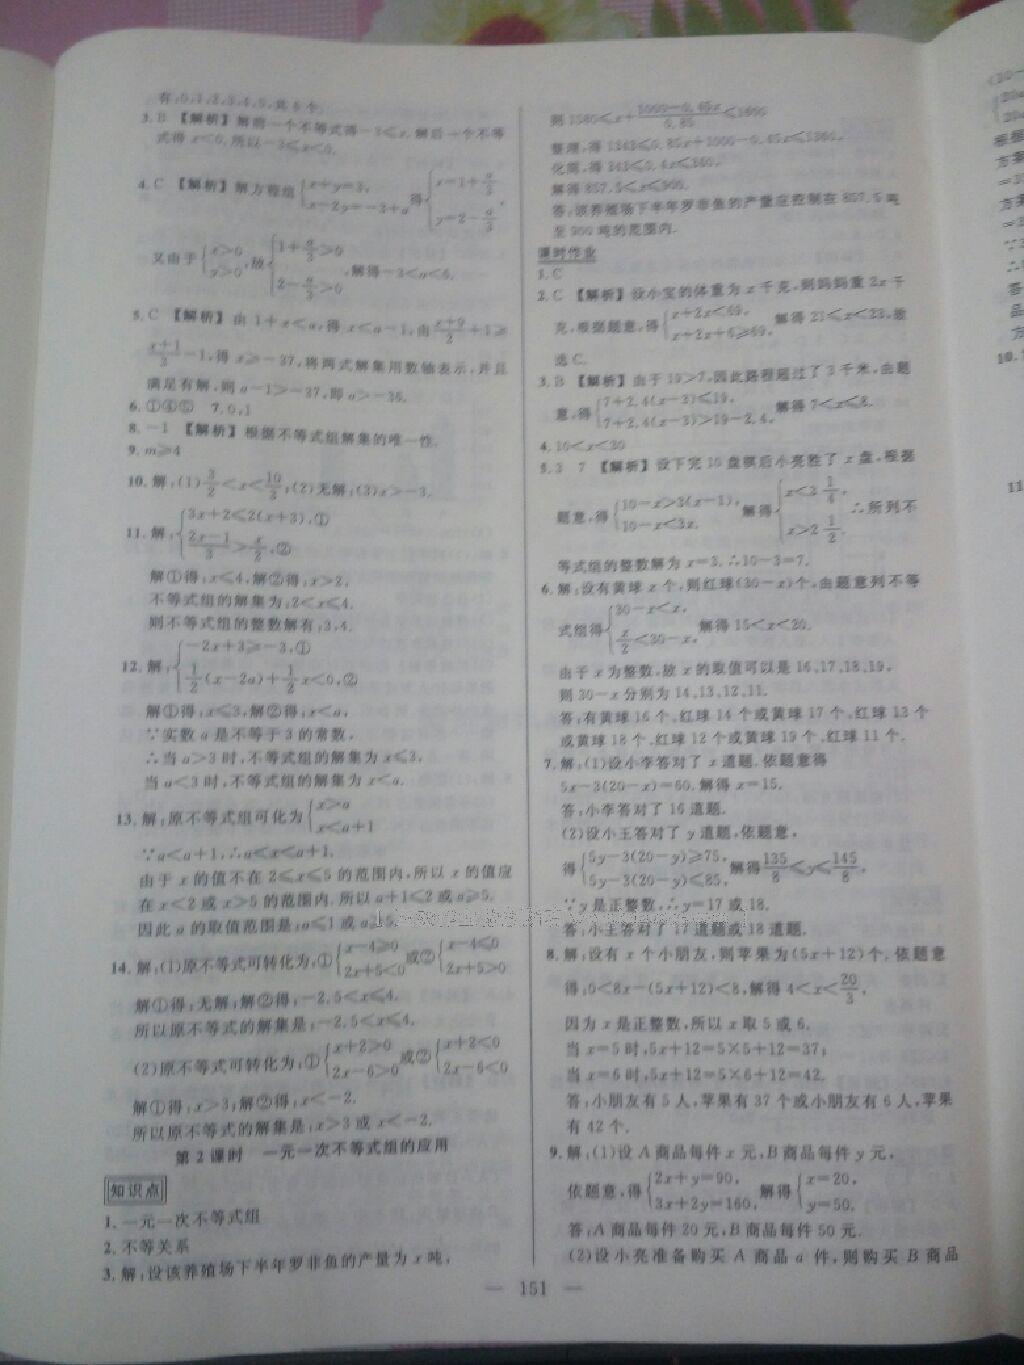 有:0,1,2,3,4,5,共6个.
3. B 【解析】解前一个不等式得-3≤x,解后一个不等
式得x<0,所以-3≤x<0.
4. C 【解析】解方程组{x+y=3, x-2y=-3+a 得{x=1+a/3, y=2-a/3,
又由于{x>0 y>0,故{1+a/3>0 2-a/3>0,解得-3<a<6.
5. C 【解析】由1+x<a,得x<a-1,由(x+9)/2+1≥
(x+1)/3-1,得x≥-37,将两式解集用数轴表示,并且
满足有解,则a-1>-37,即a>-36.
6. ①④⑤ 7. 0,1
8. -1 【解析】根据不等式组解集的唯一性.
9. m≥4
10. 解:(1)3/2<x<10/3;(2)无解;(3)x>-3.
11. 解:{3x+2≤2(x+3),① (2x-1)/3>x/2,②
解①得:x≤4,解②得:x>2,
不等式组的解集为:2<x≤4.
则不等式组的整数解有:3,4.
12. 解:{-2x+3≥-3,① 1/2(x-2a)+1/2x<0,②
解①得:x≤3,解②得:x<a,
∵实数a是不等于3的常数,
∴当a>3时,不等式组的解集为x≤3,
当a<3时,不等式组的解集为x<a.
13. 解:原不等式组可化为{x>a x<a+1
∵a<a+1,∴a<x<a+1.
由于x的值不在2≤x≤5的范围内,所以x的值应
在x<2或x>5的范围内.所以a+1≤2或a≥5.
因此a的取值范围是:a≤1或a≥5.
14. 解:(1)原不等式可转化为:①{x-4≥0 2x+5<0 或②{x-4≤0 2x+5>0
解①得:无解;解②得:-2.5<x≤4.
所以原不等式的解集是:-2.5<x≤4.
(2)原不等式可转化为:①{x+2>0 2x-6>0 或②{x+2<0 2x-6<0
解①得:x>3;解②得:x<-2.
所以原不等式的解集是:x>3或x<-2.
第2课时 一元一次不等式组的应用
知识点
1. 一元一次不等式组
2. 不等关系
3. 解:设该养殖场下半年罗非鱼的产量为x吨,
则1580≤x+(1000-0.45x)/0.85≤1600
整理,得1343≤0.85x+1000-0.45x≤1360.
化简,得343≤0.4x≤360.
解得857.5≤x≤900.
答:该养殖场下半年罗非鱼的产量应控制在857.5吨
至900吨的范围内.
课时作业
1. C
2. C 【解析】设小宝的体重为x千克,则妈妈重2x千
克,根据题意,得{x+2x<69, x+2x+6≥69, 解得21≤x<23,故
选C.
3. B 【解析】由于19>7,因此路程超过了3千米,由题
意,得{7+2.4(x-3)≤19, 7+2.4(x-3)>19-2.4, 解得7<x≤8.
4. 10<x<30
5. 3 7 【解析】设下完10盘棋后小亮胜了x盘,根据
题意,得{10-x>3(x-1), 10-x<3x, 解得{x<3 1/4, x>2 1/2. ∴所列不
等式组的整数解为x=3.∴10-3=7.
6. 解:设有黄球x个,则红球(30-x)个,由题意列不等
式组得{30-x<x, x/2<30-x, 解得15<x<20.
由于x为整数,故x的取值可以是16,17,18,19,
则30-x分别为14,13,12,11.
答:有黄球16个,红球14个或黄球17个,红球13个
或黄球18个,红球12个或黄球19个,红球11个.
7. 解:(1)设小李答对了x道题.依题意得
5x-3(20-x)=60.解得x=15.
答:小李答对了16道题.
(2)设小王答对了y道题,依题意,
得{5y-3(20-y)≥75, 5y-3(20-y)≤85, 解得135/8≤y≤145/8.
∵y是正整数,∴y=17或18.
答:小王答对了17道题或18道题.
8. 解:设有x个小朋友,则苹果为(5x+12)个.依题意
得:0<8x-(5x+12)<8,解得4<x<20/3,
因为x是正整数,所以x取5或6.
当x=5时,5x+12=5×5+12=37;
当x=6时,5x+12=5×6+12=42.
答:小朋友有5人,苹果有37个或小朋友有6人,苹果
有42个.
9. 解:(1)设A商品每件x元,B商品每件y元,
依题意,得{2x+y=90, 3x+2y=160, 解得{x=20, y=50.
答:A商品每件20元,B商品每件50元.
(2)设小亮准备购买A商品a件,则购买B商品
— 151 —
根据
方案
方案
答
品
方
10.
11